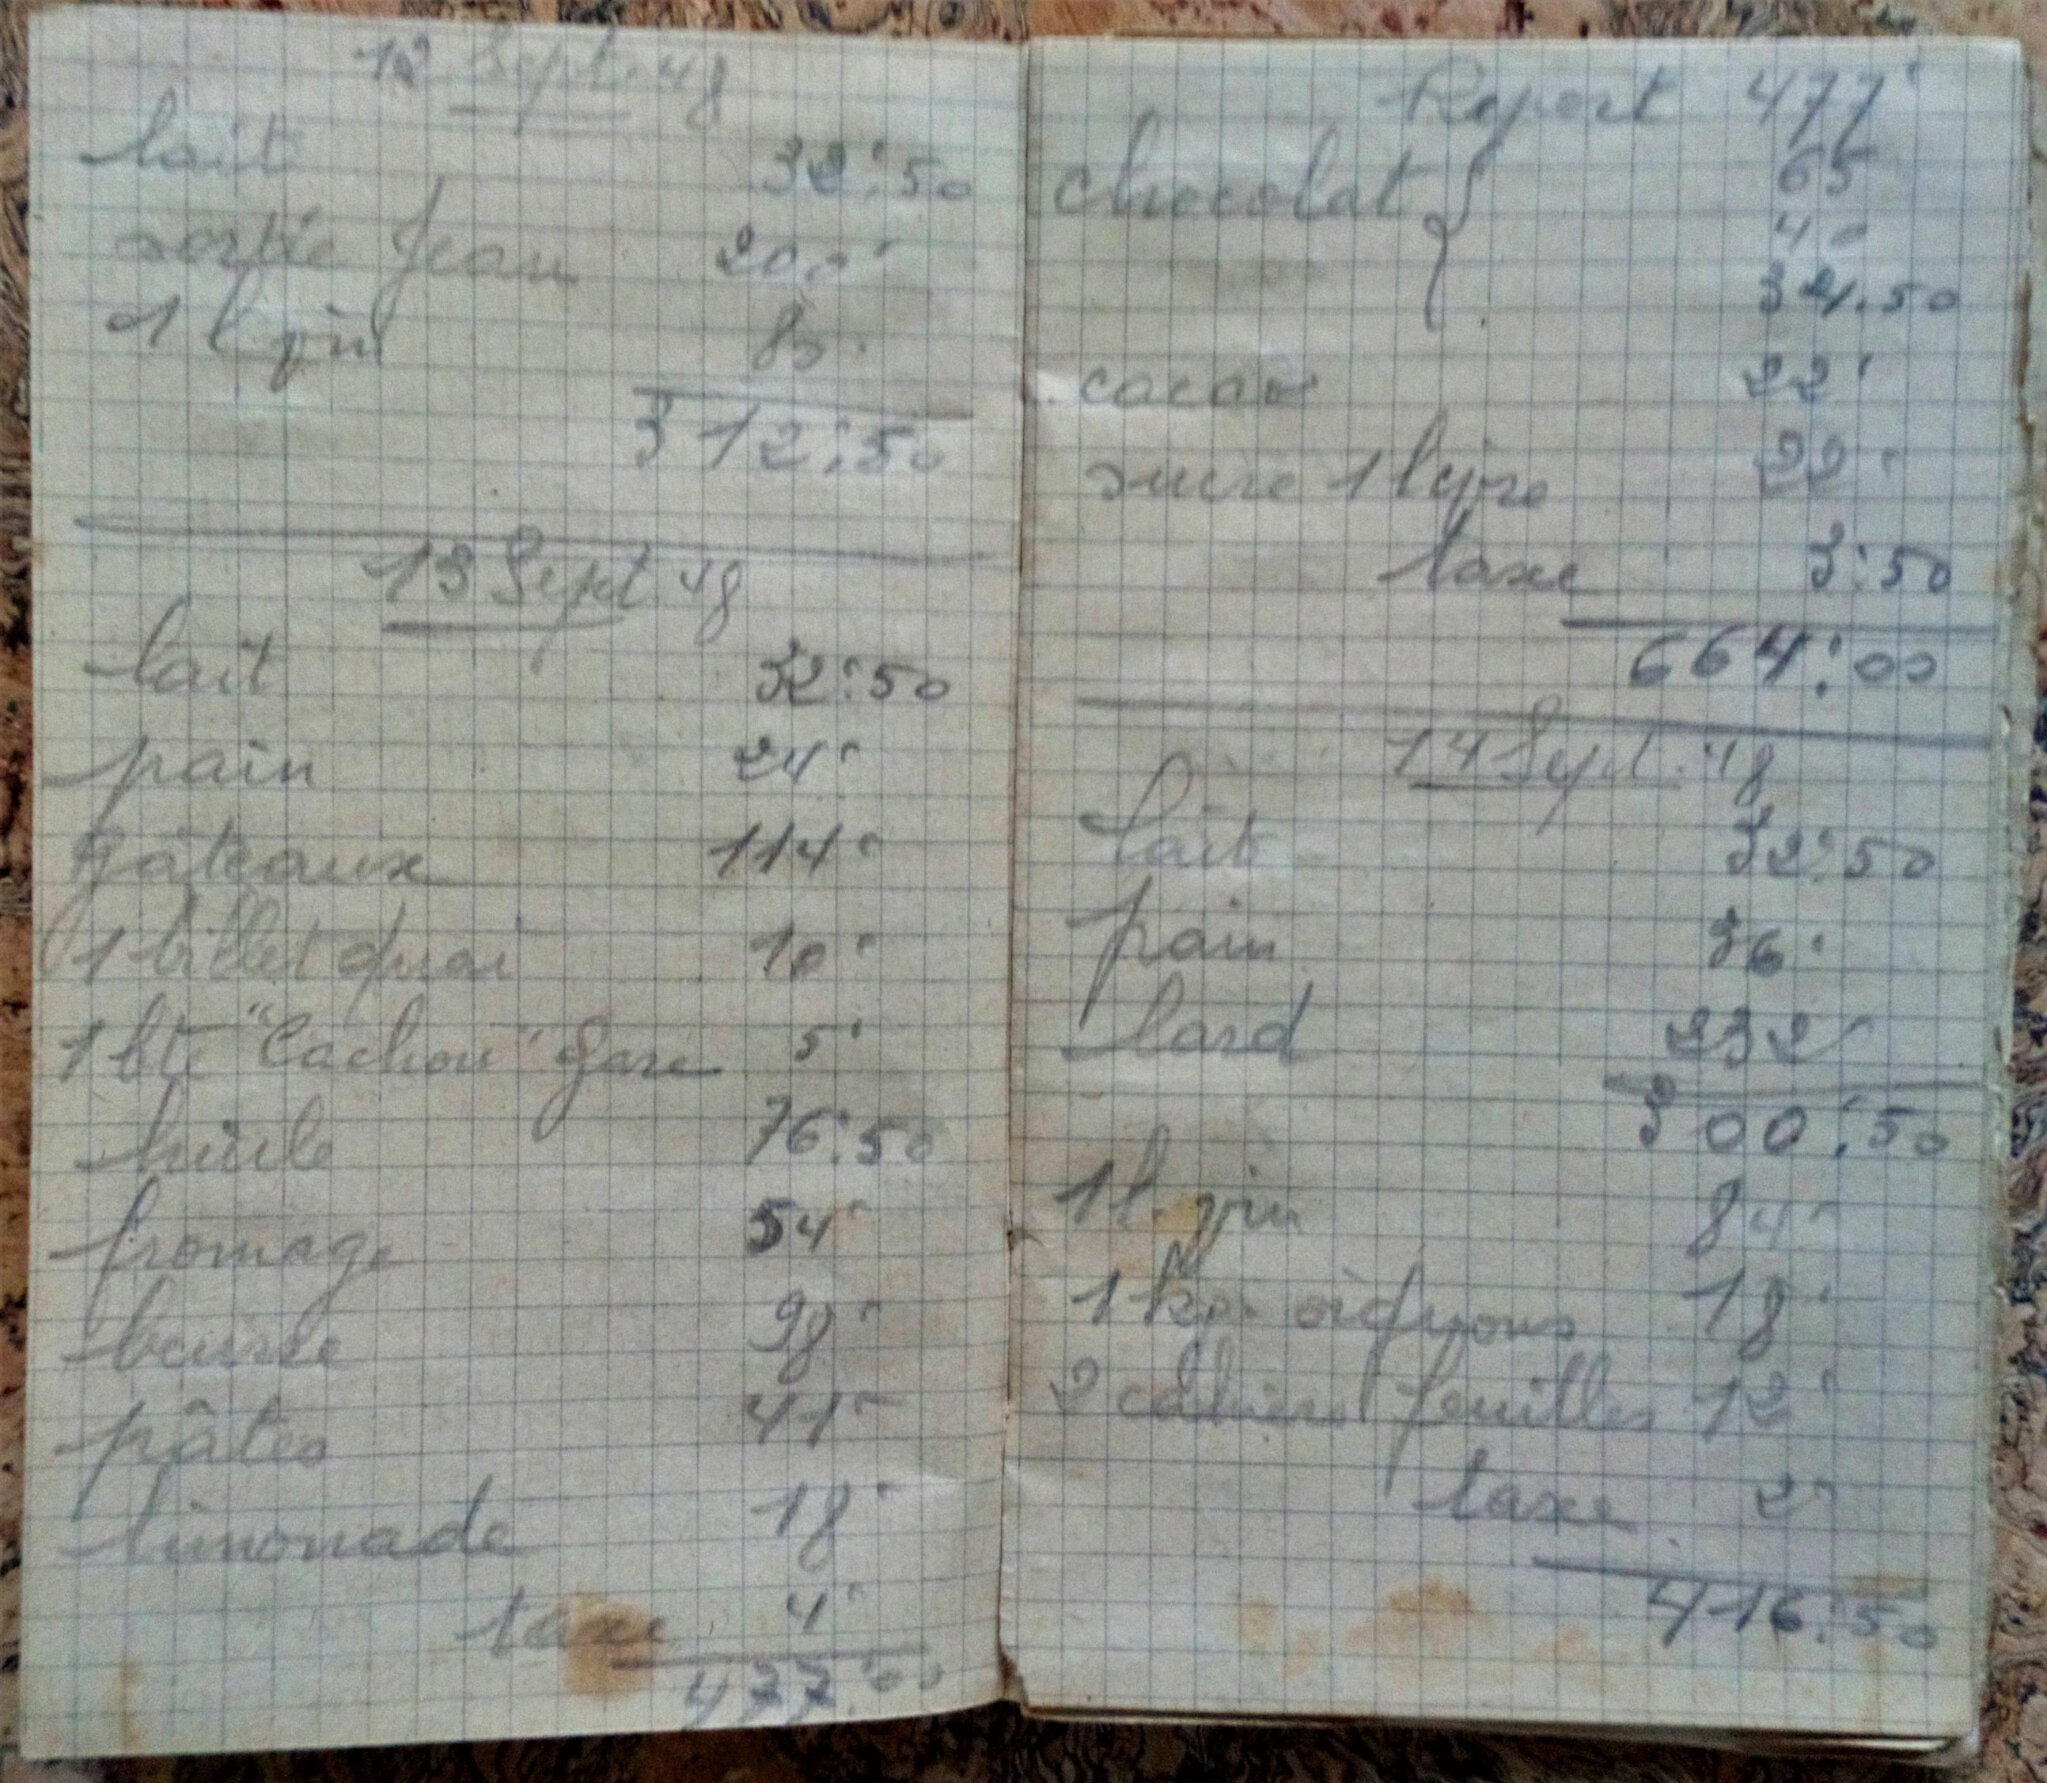 12 Sept. 48
lait 32:50
sortie Jean 200'
1 l vin 80.
312:50
13 Sept 48
lait 32:50
pain 24'
gâteaux 114'
1 billet quai 10'
1 bte "Cachou" gare 5'
huile 76:50
fromage 54'
beurre 98'
pâtes 41'
limonade 18'
taxe 4'
477:00
Report 477'
chocolat { 65
40
34.50
cacao 22'
sucre 1 livre 22'
taxe 3:50
664:00
14 Sept. 48
lait 32:50
pain 36'
lard 232'
300:50
1 l. vin 84'
1 ko oignons 18'
2 cahiers feuilles 12'
taxe 2'
416:50